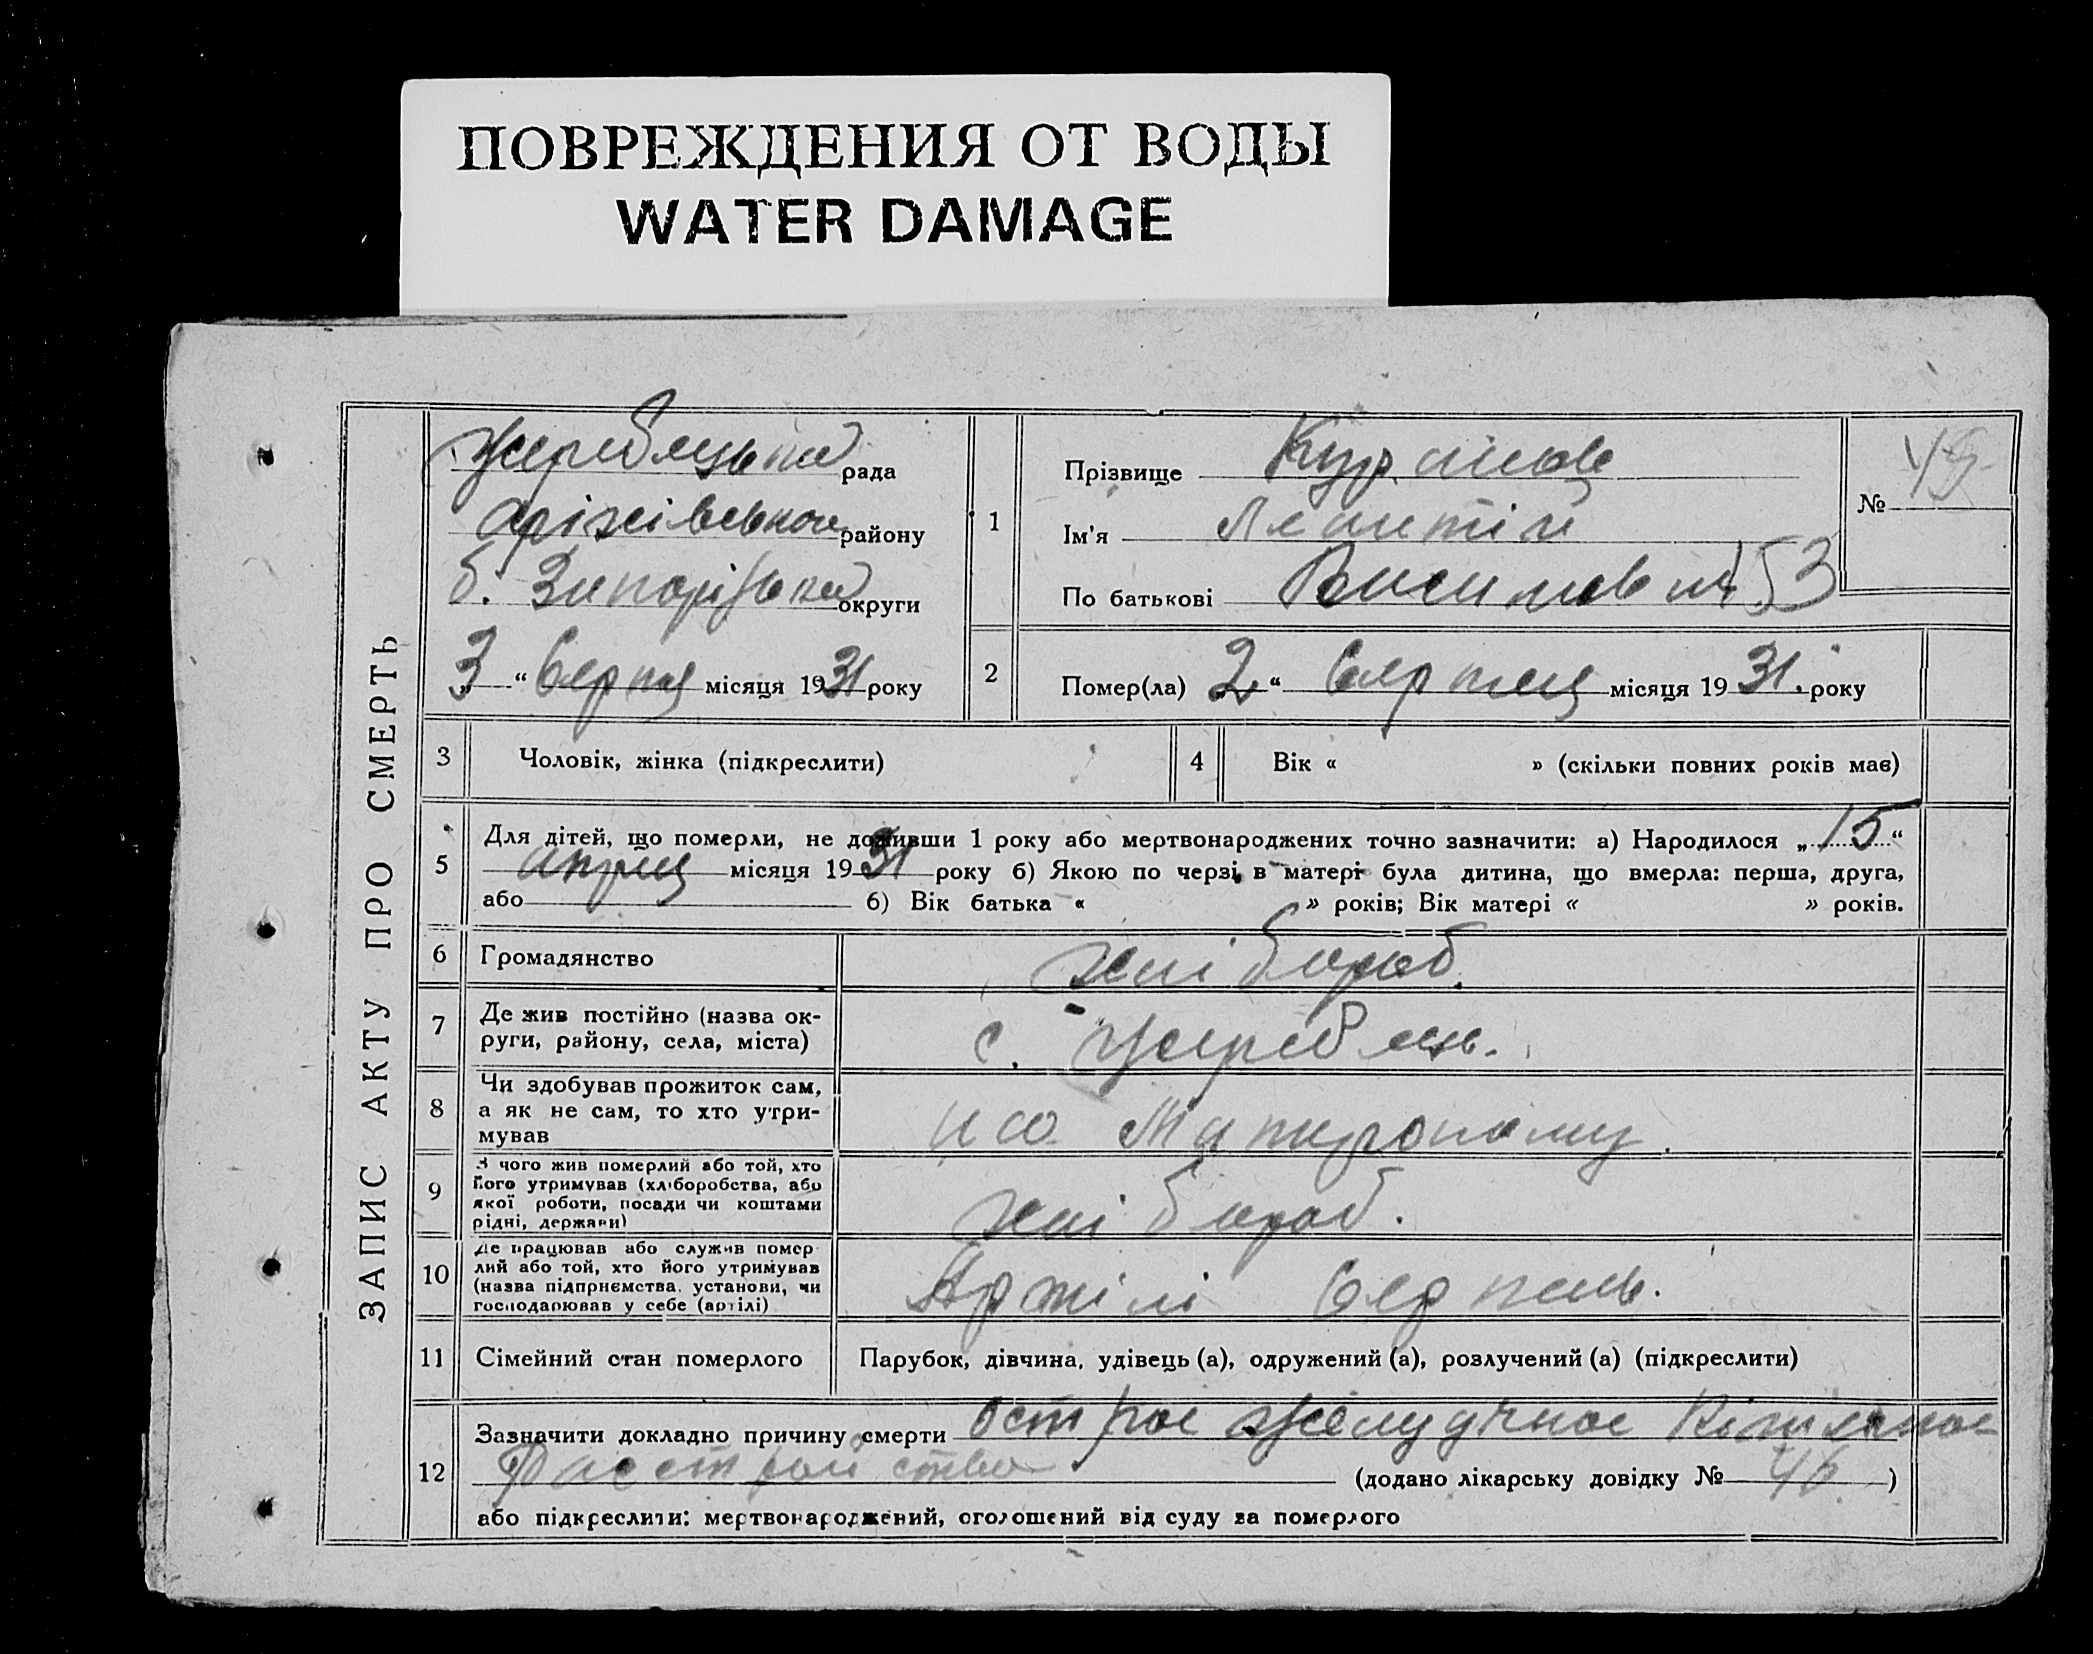 ПОВРЕЖДЕНИЯ ОТ ВОДЫ
WATER DAMAGE
ЗАПИС АКТУ ПРО СМЕРТЬ
Жеребецька рада
Оріхівського району
б. Запорізька округи
„3“ Серпця місяця 1931 року
1
Прізвище
Ім'я
По батькові 53
№ 49
2
Помер(ла) 2 “ Серпня місяця 1931. року
3 Чоловік, жінка (підкреслити)
4 Вік « » (скільки повних років має)
5
Для дітей, що померли, не доживши 1 року або мертвонароджених точно зазначити: а) Народилося „15“
місяця 1931 року б) Якою по черзі в матері була дитина, що вмерла: перша, друга,
або б) Вік батька « » років; Вік матері « » років.
6 Громадянство хлібороб.
7 Де жив постійно (назва ок-
руги, району, села, міста)
с. Жеребець.
8 Чи здобував прожиток сам,
а як не сам, то хто утри-
мував
9 З чого жив померлий або той, хто
його утримував (хліборобства, або
якої роботи, посади чи коштами
рідні, держави)
хлібороб.
10 Де працював або служив помер
лий або той, хто його утримував
(назва підприємства, установи, чи
господарював у себе (артілі)
Артілі Серпень.
11 Сімейний стан померлого Парубок, дівчина, удівець (а), одружений (а), розлучений (а) (підкреслити)
12
Зазначити докладно причину смерти острое желудочное
Расстройство (додано лікарську довідку № 46 )
або підкреслити: мертвонароджений, оголошений від суду за померлого